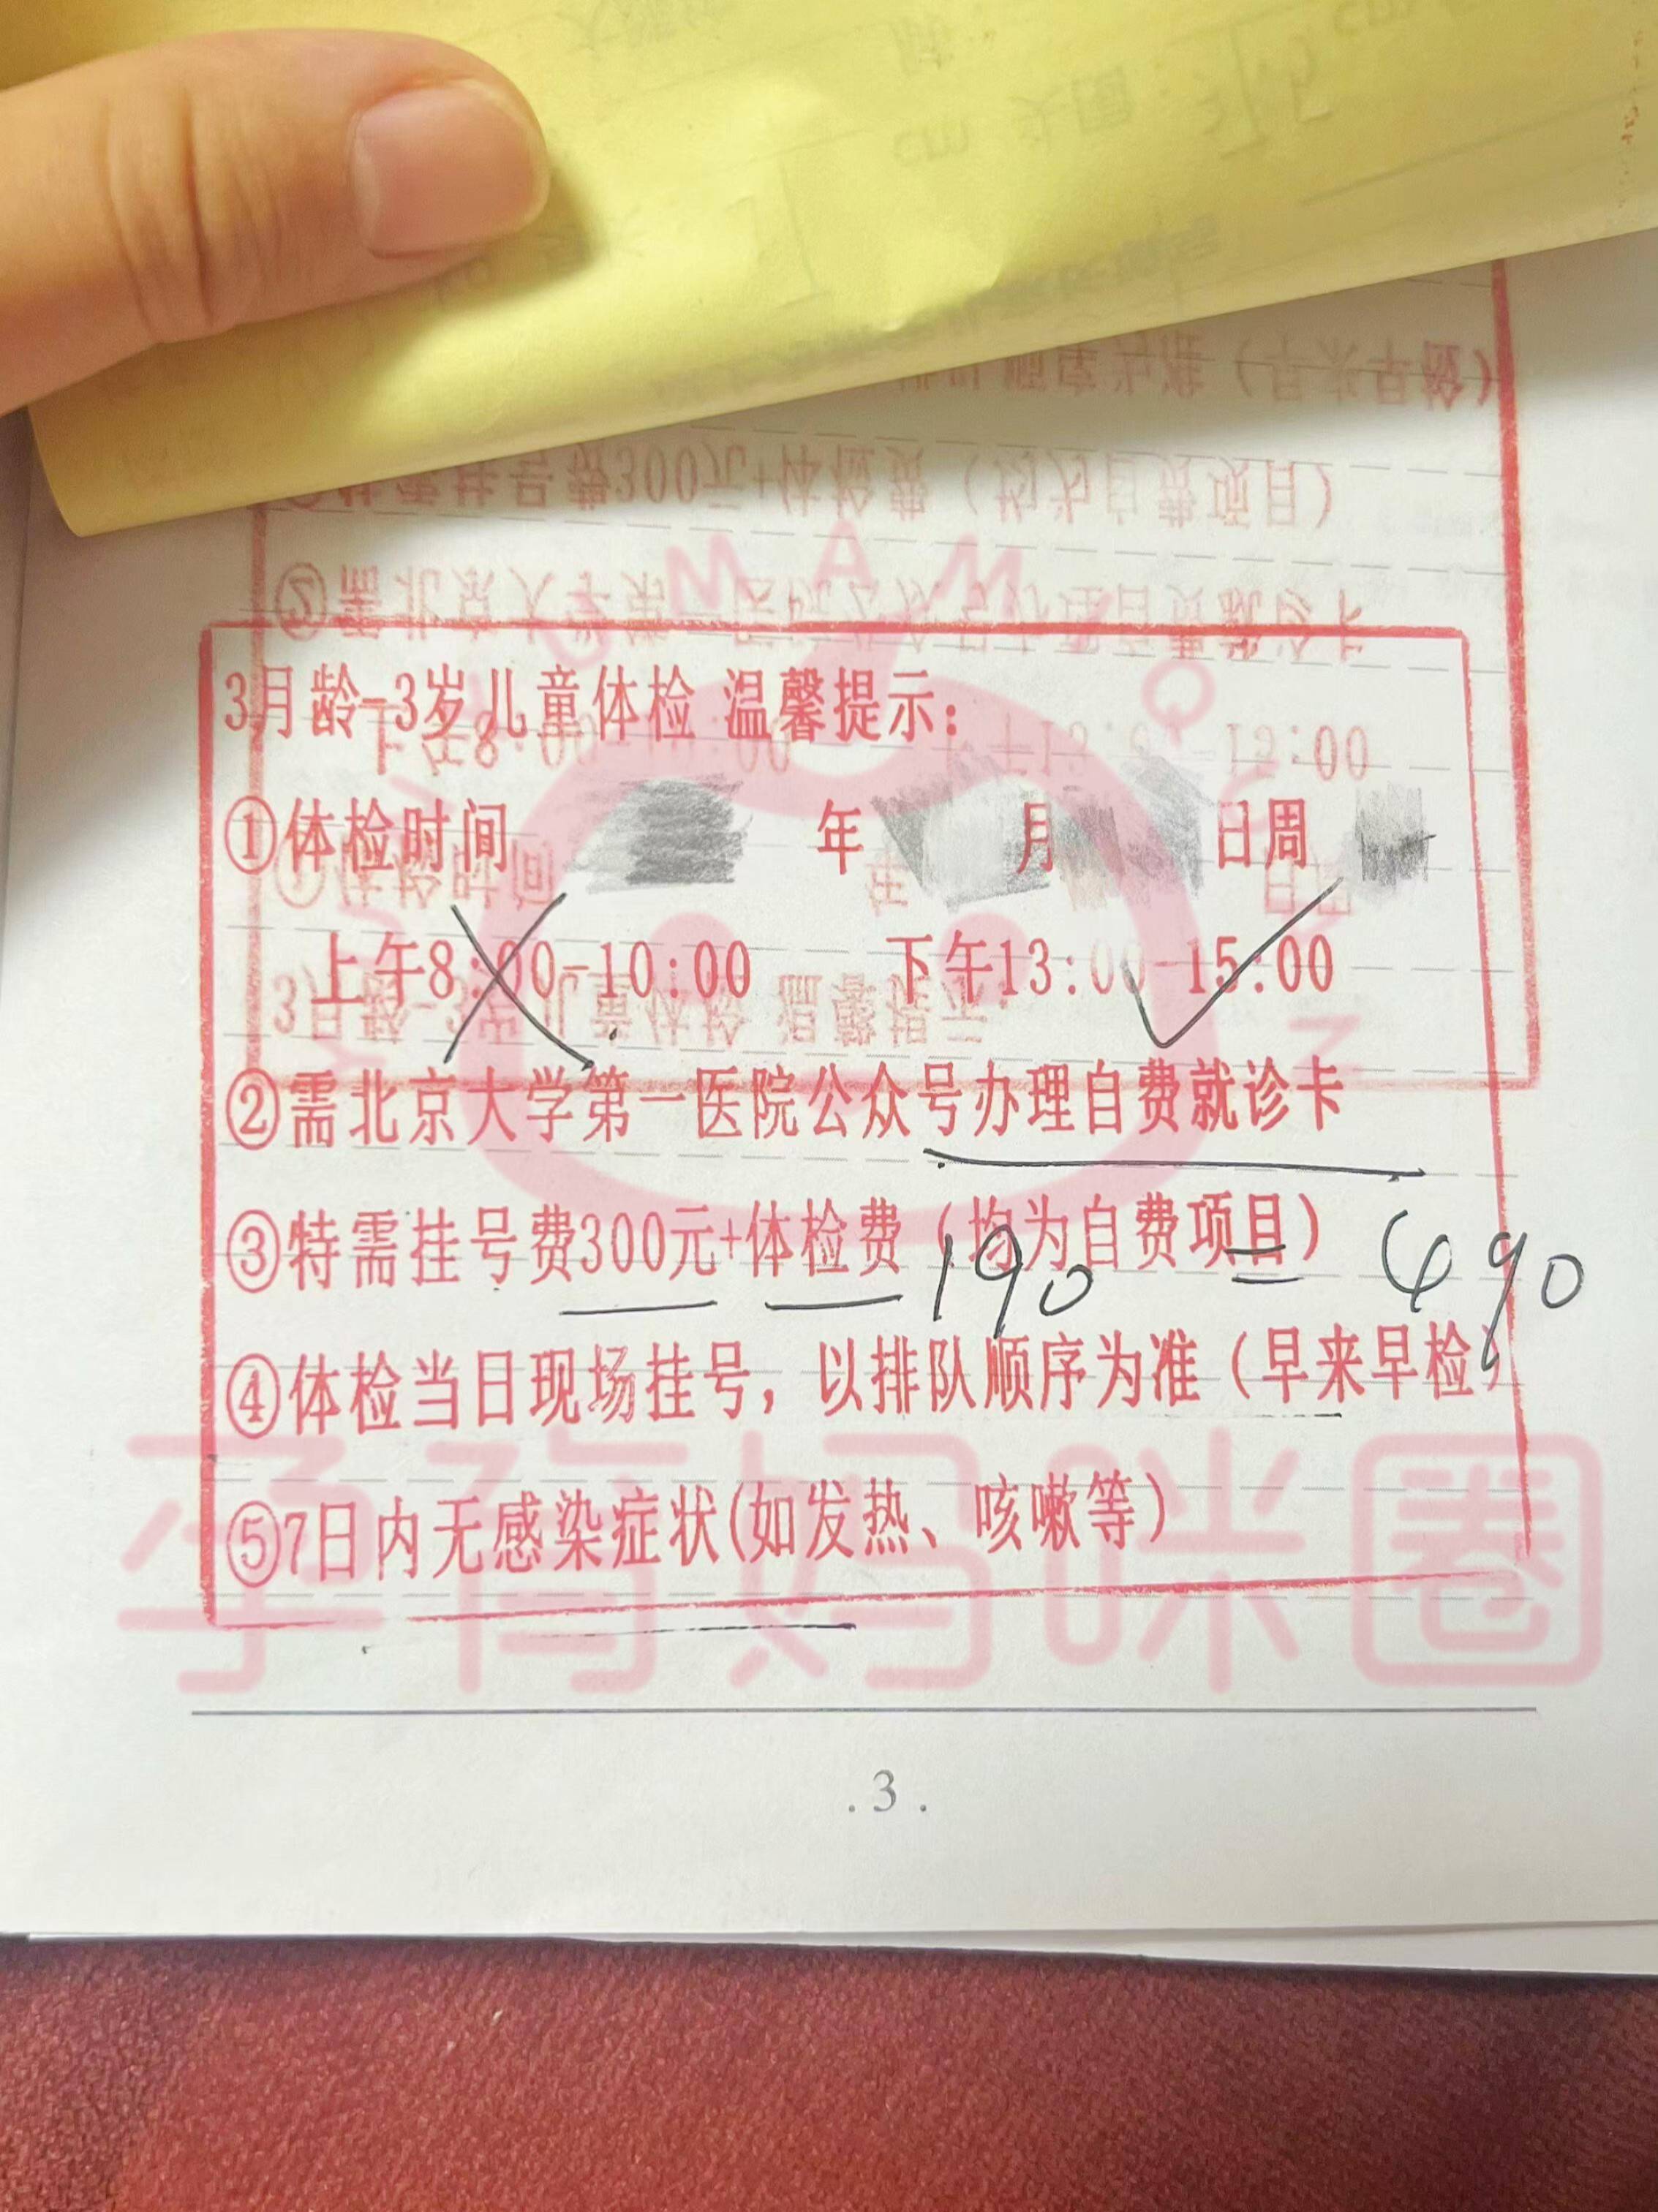 3月龄-3岁儿童体检 温馨提示：
①体检时间 年 月 日周
上午8:00-10:00 下午13:00-15:00
②需北京大学第一医院公众号办理自费就诊卡
③特需挂号费300元+体检费（均为自费项目）
190 = 490
④体检当日现场挂号，以排队顺序为准（早来早检）
⑤7日内无感染症状(如发热、咳嗽等)
孕育妈咪圈
.3.